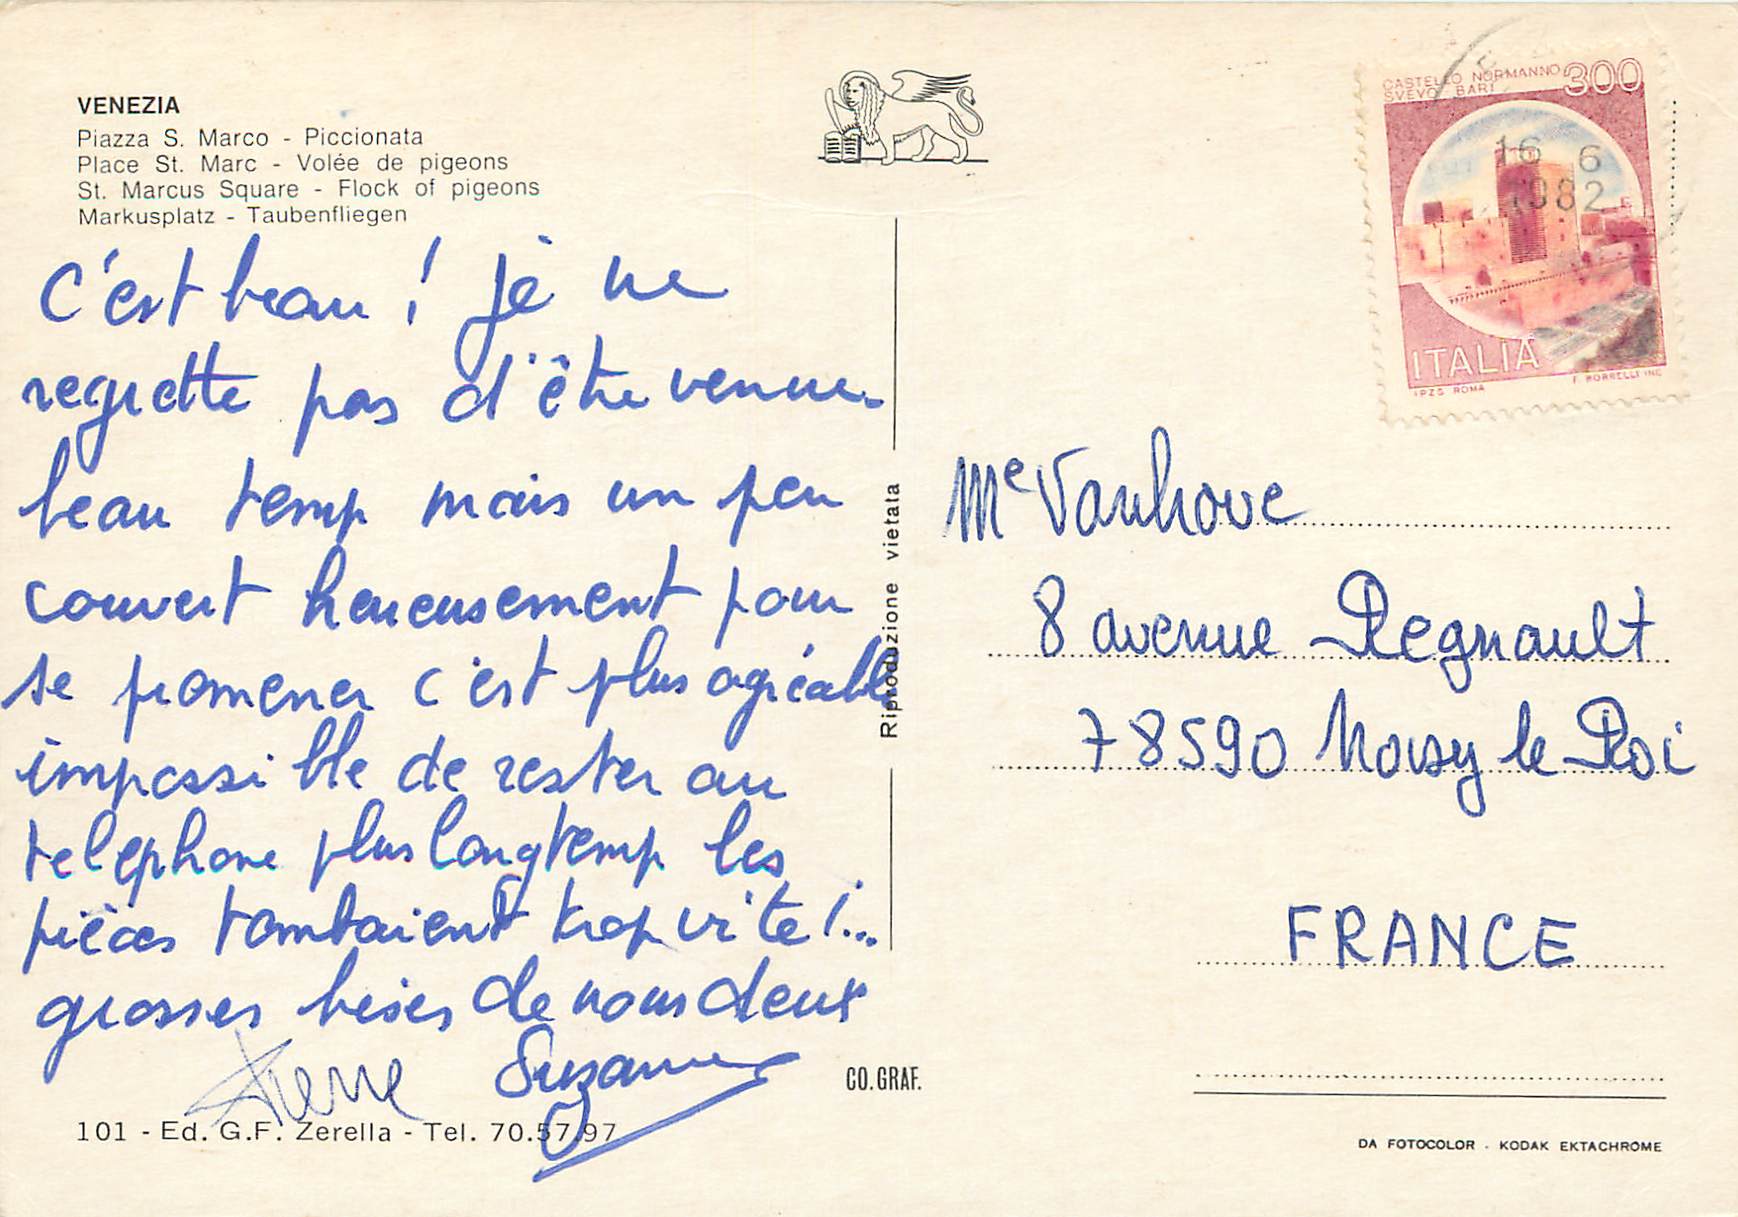 VENEZIA
Piazza S. Marco - Piccionata
Place St. Marc - Volée de pigeons
St. Marcus Square - Flock of pigeons
Markusplatz - Taubenfliegen
C'est beau ! je ne
regrette pas d'être venue.
beau temp mais un peu
couvert heureusement pour
se promener c'est plus agréable
impossible de rester au
telephone plus longtemp les
pièces tombaient trop vite !...
grosses bises de nous deux
Pierre Suzanne
101 - Ed. G.F. Zerella - Tel. 70.57.97
Riproduzione vietata
CO. GRAF.
CASTELLO NORMANNO
SVEVO - BARI
300
16 6
1982
ITALIA
I.P.Z.S. ROMA
F. BORRELLI INC.
Me Vanhove
8 avenue Regnault
78590 Noisy le Roi
FRANCE
DA FOTOCOLOR - KODAK EKTACHROME